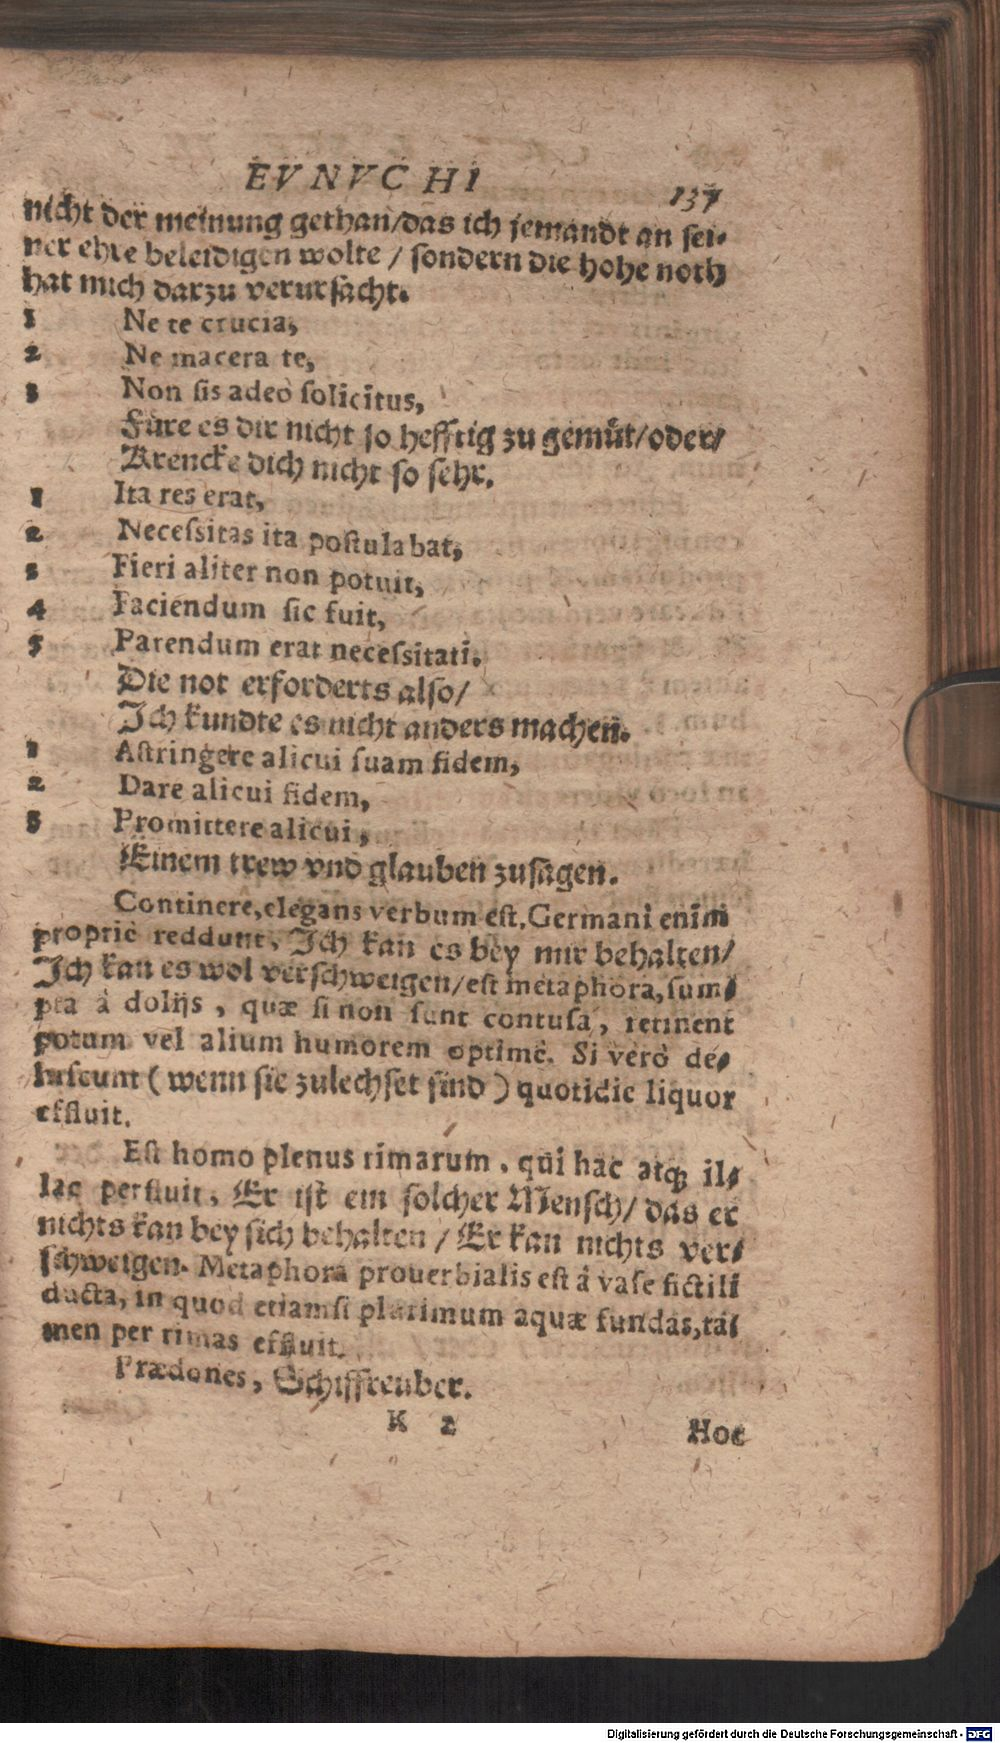 EVNVCHI 137
nicht der meinung gethan/das ich jemandt an sei-
ner ehre beleidigen wolte / sondern die hohe noth
hat mich darzu verursacht.
1 Ne te crucia,
2 Ne macera te,
3 Non sis adeò solicitus,
Füre es dir nicht so hefftig zu gemüt/oder/
Krencke dich nicht so sehr.
1 Ita res erat,
2 Necessitas ita postulabat,
3 Fieri aliter non potuit,
4 Faciendum sic fuit,
5 Parendum erat necessitati.
Die not erforderts also/
Ich kundte es nicht anders machen.
1 Astringere alicui suam fidem,
2 Dare alicui fidem,
3 Promittere alicui,
Einem trew vnd glauben zusagen.
Continere, elegans verbum est, Germani enim
propriè reddunt, Ich kan es bey mir behalten/
Ich kan es wol verschweigen/est metaphora, sum-
pta à dolijs, quæ si non sunt contusa, retinent
potum vel alium humorem optimè. Si verò de-
hiscunt (wenn sie zulechset sind) quotidie liquor
effluit.
Est homo plenus rimarum, qui hac atq; il-
lac perfluit, Er ist ein solcher Mensch/ das er
nichts kan bey sich behalten / Er kan nichts ver-
schweigen. Metaphora prouerbialis est à vase fictili
ducta, in quod etiamsi plurimum aquæ fundas, ta-
men per rimas effluit.
Prædones, Schiffreuber.
K 2 Hoc
Digitalisierung gefördert durch die Deutsche Forschungsgemeinschaft - DFG